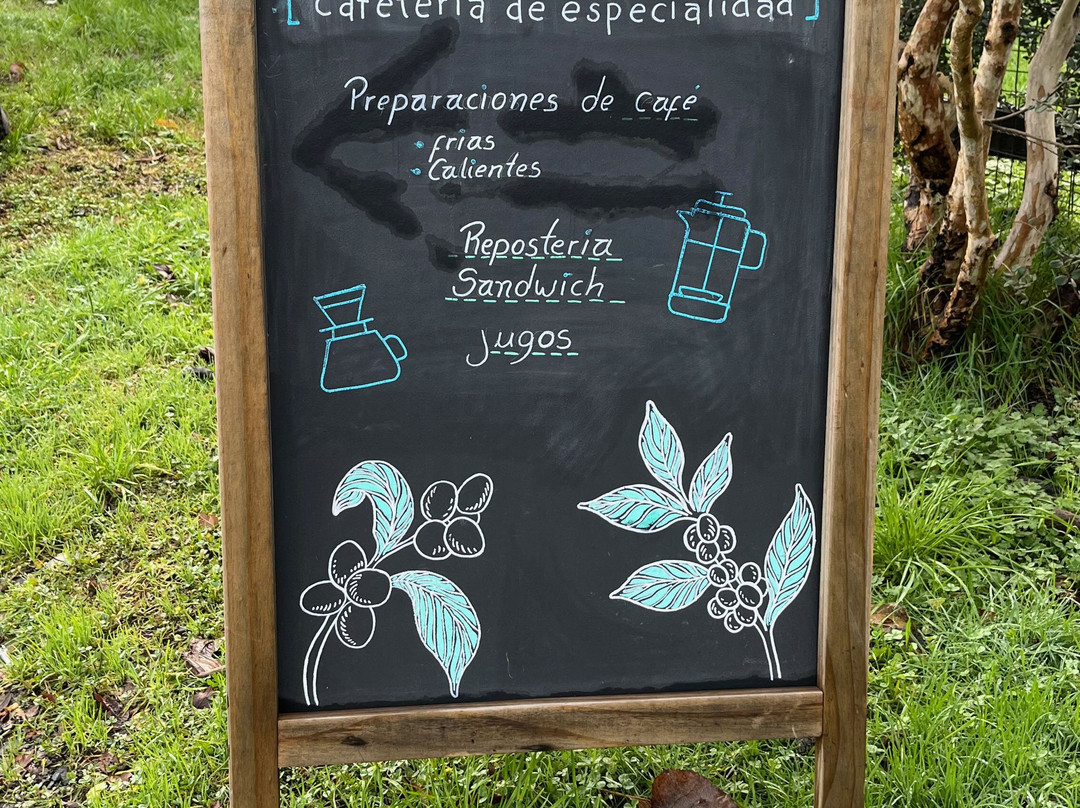 [ Cafetería de especialidad ]
Preparaciones de café
• frías
• Calientes
Repostería
Sandwich
jugos